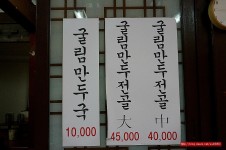 굴림만두국
10,000
굴림만두전골
大
45,000
굴림만두전골
中
40,000